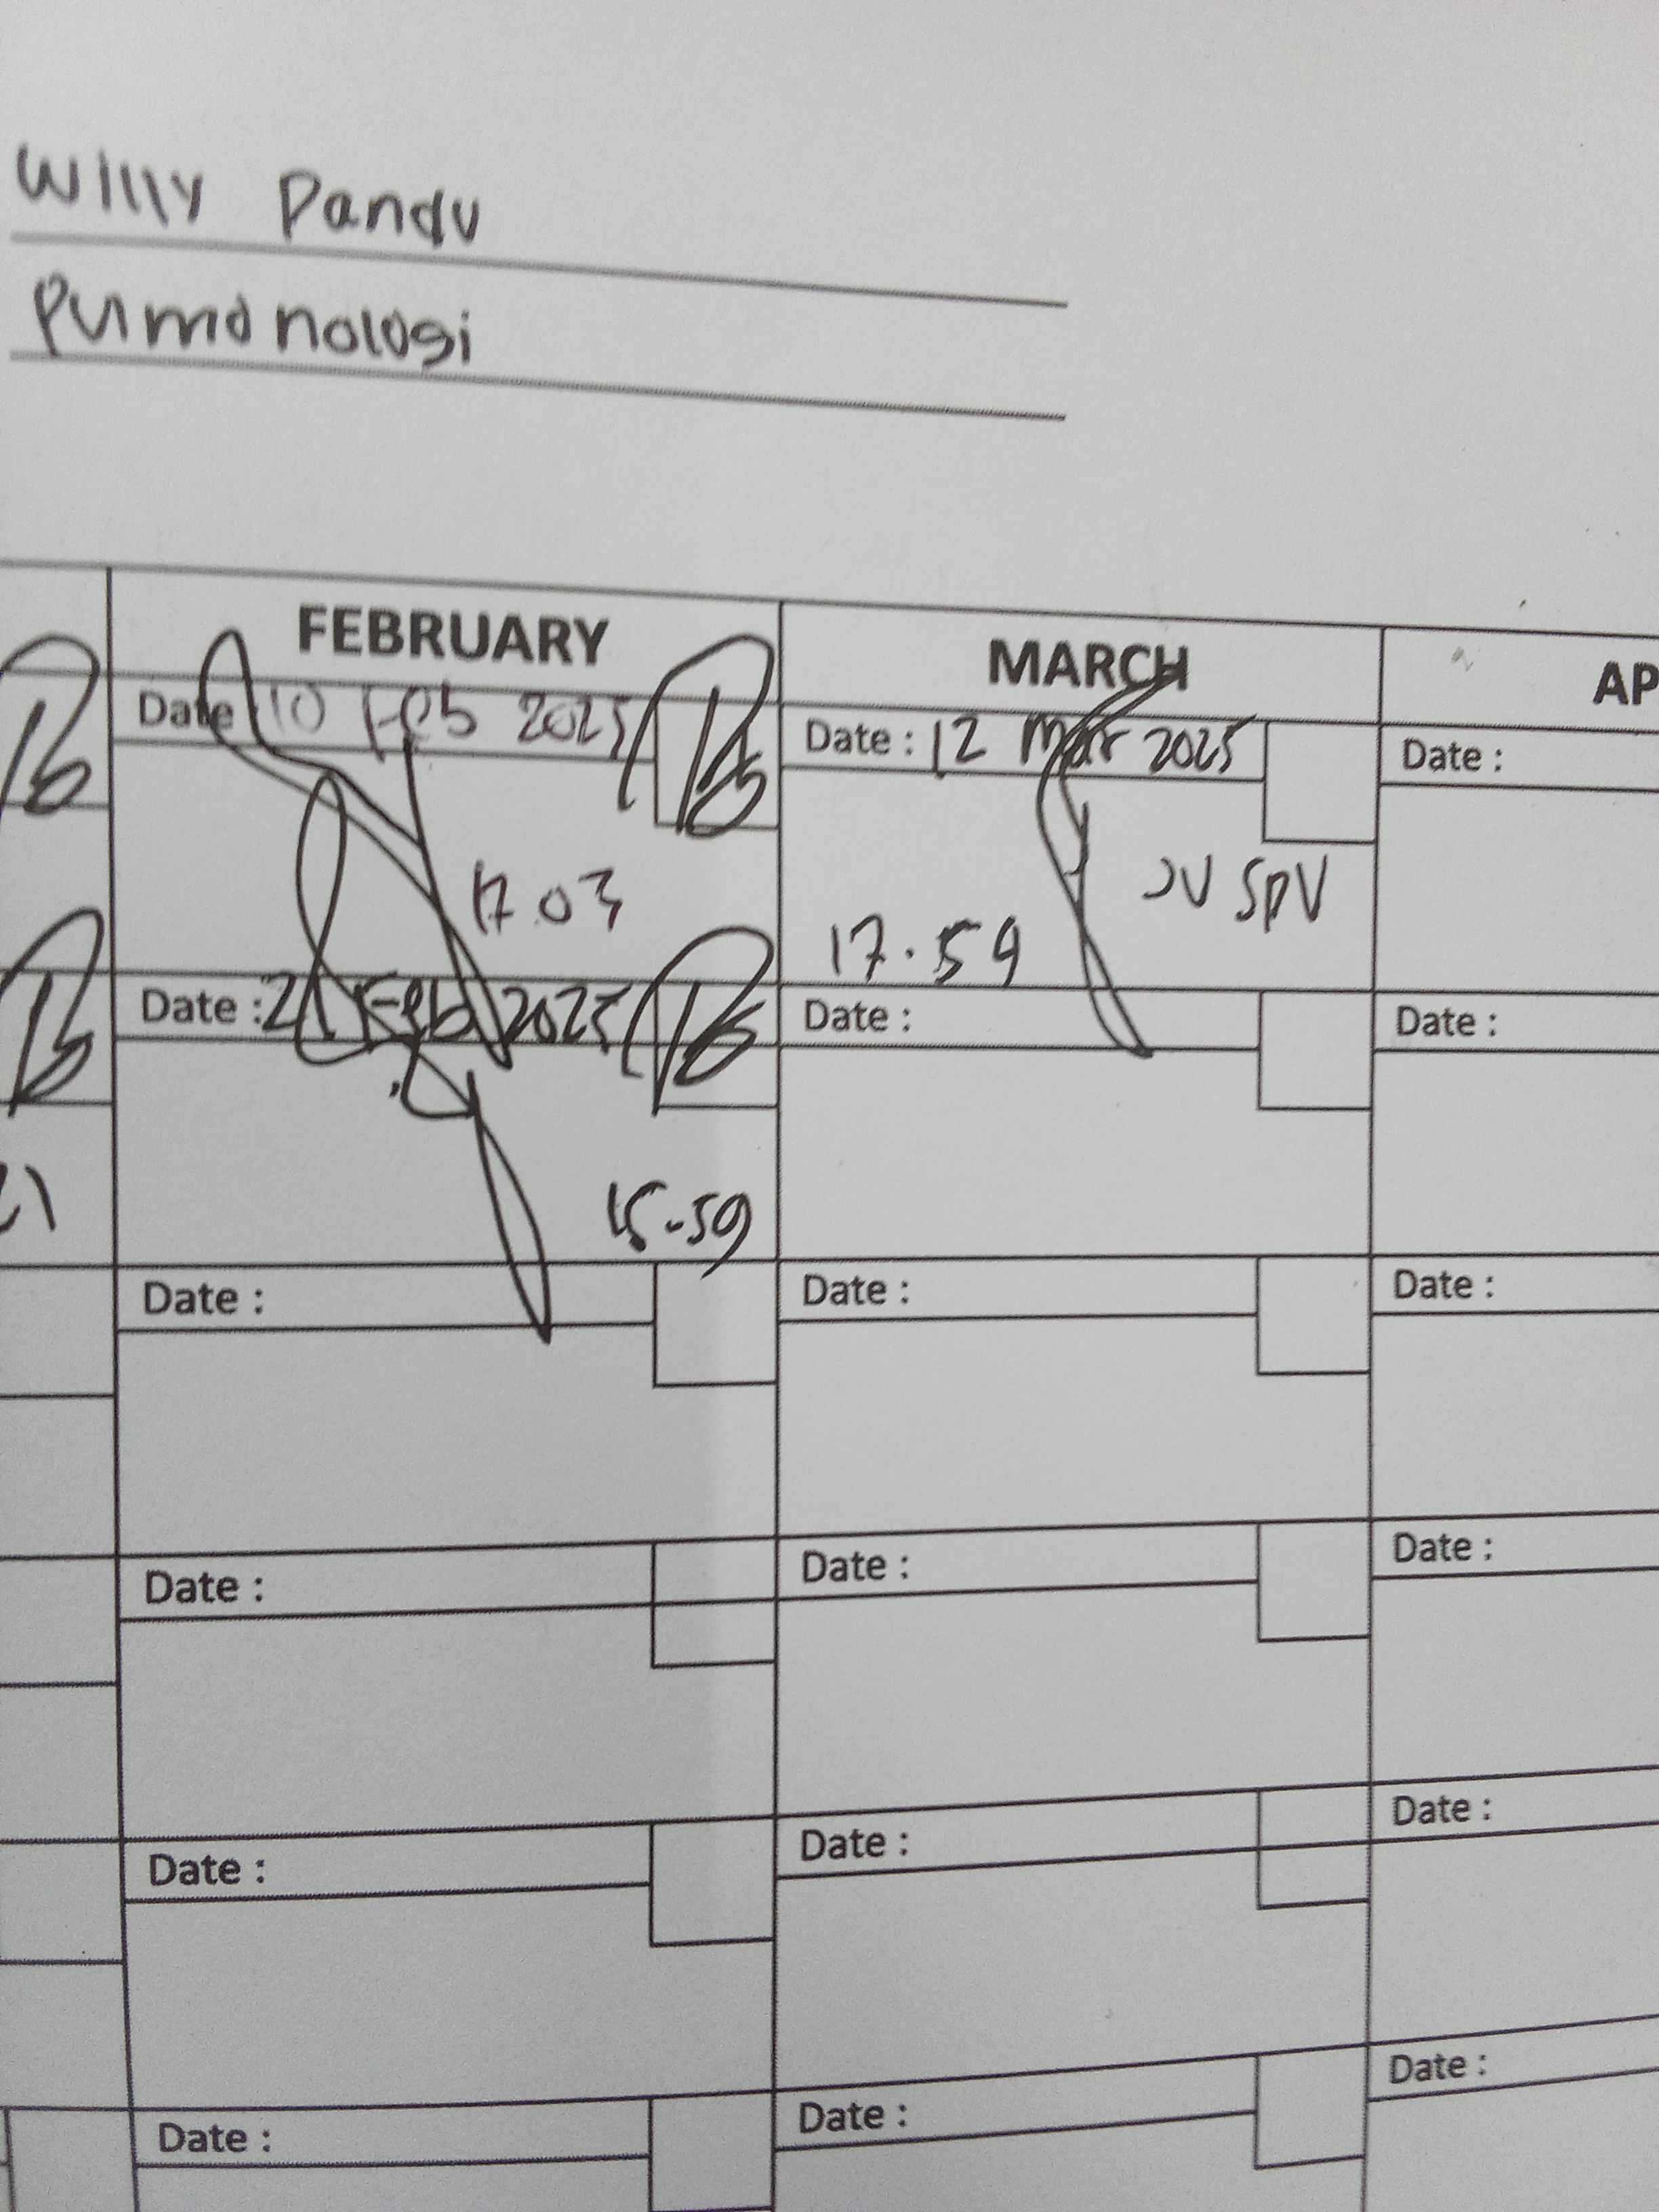 Willy Pandu
Pumonologi
FEBRUARY
MARCH
AP
Date : 10 Feb 2025
Date : 12 Mar 2025
Date :
17.03
JV SPV
17.59
Date : 21 Feb 2025
Date :
Date :
21
15.59
Date :
Date :
Date :
Date :
Date :
Date :
Date :
Date :
Date :
Date :
Date :
Date :